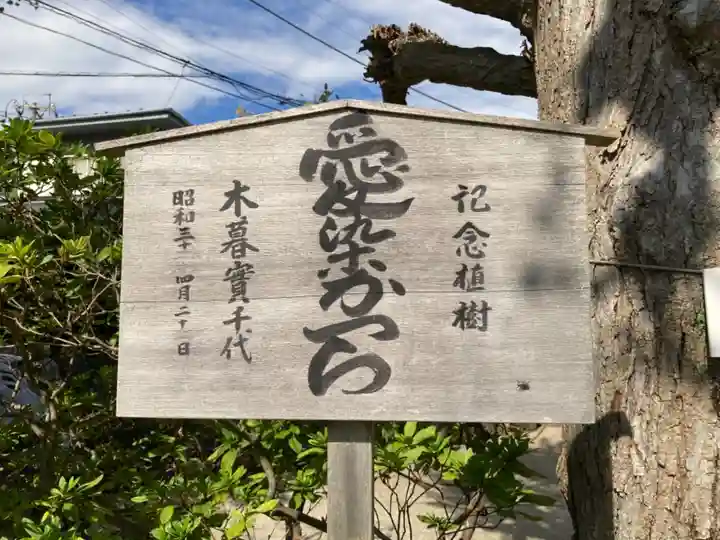 記念植樹
愛染かつら
木暮實千代
昭和三十一 四月二十日